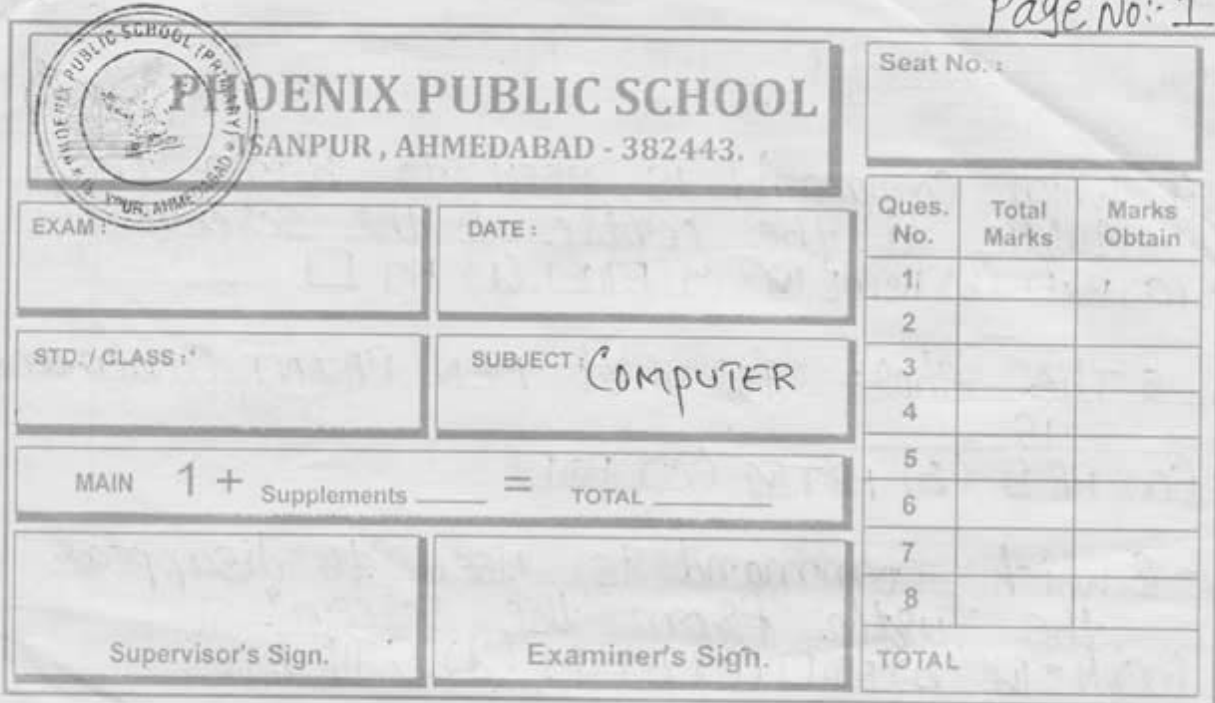 Page No:- 1
PHOENIX PUBLIC SCHOOL
ISANPUR , AHMEDABAD - 382443.
Seat No. :
EXAM :
DATE :
STD. / CLASS :
SUBJECT : COMPUTER
MAIN 1 + Supplements ____ = TOTAL ____
Supervisor's Sign.
Examiner's Sign.
Ques. No. Total Marks Marks Obtain
1
2
3
4
5
6
7
8
TOTAL